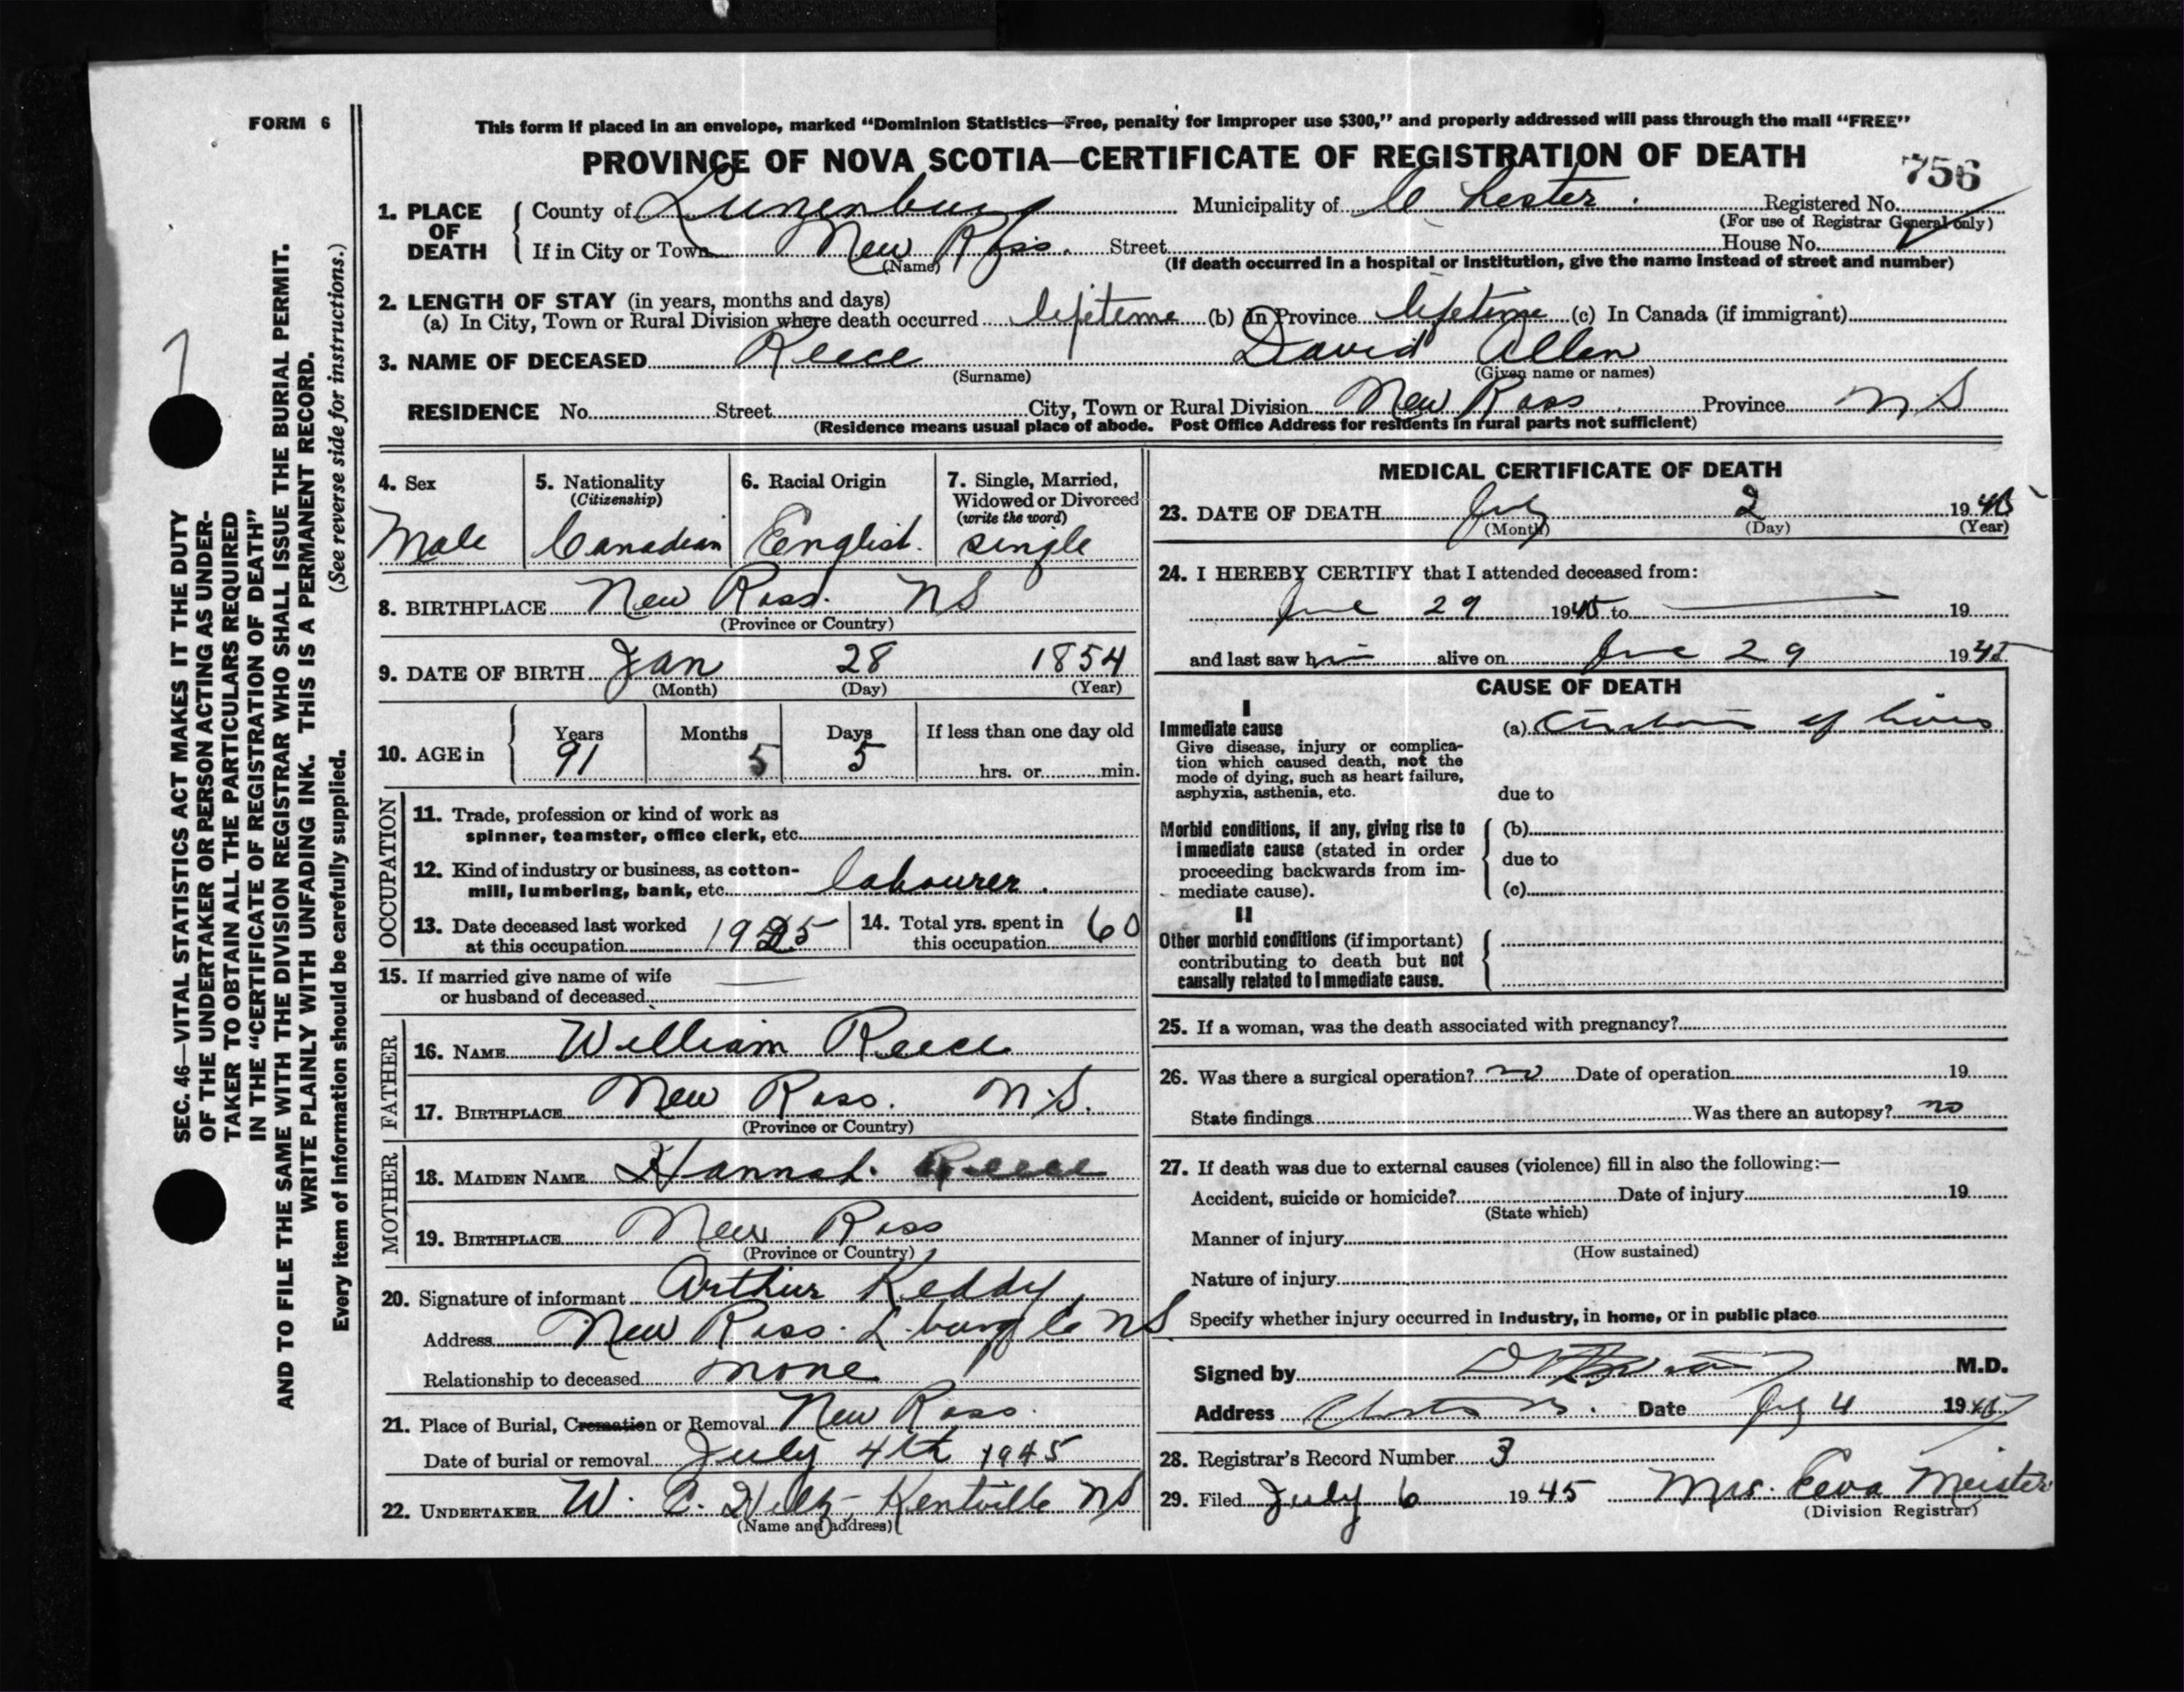 FORM 6
This form if placed in an envelope, marked "Dominion Statistics—Free, penalty for improper use $300," and properly addressed will pass through the mail "FREE"
PROVINCE OF NOVA SCOTIA—CERTIFICATE OF REGISTRATION OF DEATH
756
1. PLACE OF DEATH
County of Lunenburg Municipality of Chester. Registered No.
(For use of Registrar General only)
If in City or Town New Ross. Street House No.
(Name) (If death occurred in a hospital or institution, give the name instead of street and number)
2. LENGTH OF STAY (in years, months and days)
(a) In City, Town or Rural Division where death occurred lifetime (b) In Province lifetime (c) In Canada (if immigrant)
3. NAME OF DECEASED Reece David Allen
(Surname) (Given name or names)
RESIDENCE No. Street City, Town or Rural Division New Ross Province N S
(Residence means usual place of abode. Post Office Address for residents in rural parts not sufficient)
4. Sex
Male
5. Nationality
(Citizenship)
Canadian
6. Racial Origin
English.
7. Single, Married, Widowed or Divorced
(write the word)
single
8. BIRTHPLACE New Ross. NS
(Province or Country)
9. DATE OF BIRTH Jan 28 1854
(Month) (Day) (Year)
10. AGE in Years Months Days If less than one day old
91 5 5 hrs. or min.
OCCUPATION
11. Trade, profession or kind of work as
spinner, teamster, office clerk, etc.
12. Kind of industry or business, as cotton-
mill, lumbering, bank, etc. labourer.
13. Date deceased last worked
at this occupation 1925
14. Total yrs. spent in
this occupation 60
15. If married give name of wife
or husband of deceased —
FATHER
16. NAME William Reece
17. BIRTHPLACE New Ross. N.S.
(Province or Country)
MOTHER
18. MAIDEN NAME Hannah Reece
19. BIRTHPLACE New Ross
(Province or Country)
20. Signature of informant Arthur Keddy
Address New Ross. L.burg Co NS
Relationship to deceased none
21. Place of Burial, Cremation or Removal New Ross.
Date of burial or removal July 4th 1945
22. UNDERTAKER W. C. Kentville NS
(Name and address)
MEDICAL CERTIFICATE OF DEATH
23. DATE OF DEATH July 2 1945
(Month) (Day) (Year)
24. I HEREBY CERTIFY that I attended deceased from:
June 29 1945 to — 19
and last saw him alive on June 29 1945
CAUSE OF DEATH
I
Immediate cause
Give disease, injury or complica-
tion which caused death, not the
mode of dying, such as heart failure,
asphyxia, asthenia, etc.
(a) Cirrhosis of liver
due to
Morbid conditions, if any, giving rise to
immediate cause (stated in order
proceeding backwards from im-
mediate cause).
(b)
due to
(c)
II
Other morbid conditions (if important)
contributing to death but not
causally related to immediate cause.
25. If a woman, was the death associated with pregnancy?
26. Was there a surgical operation? no Date of operation 19
State findings Was there an autopsy? no
27. If death was due to external causes (violence) fill in also the following:—
Accident, suicide or homicide? Date of injury 19
(State which)
Manner of injury
(How sustained)
Nature of injury
Specify whether injury occurred in industry, in home, or in public place
Signed by M.D.
Address Chester Date July 4 1945
28. Registrar's Record Number 3
29. Filed July 6 1945 Mrs. Eeva Meister
(Division Registrar)
SEC. 46—VITAL STATISTICS ACT MAKES IT THE DUTY
OF THE UNDERTAKER OR PERSON ACTING AS UNDER-
TAKER TO OBTAIN ALL THE PARTICULARS REQUIRED
IN THE "CERTIFICATE OF REGISTRATION OF DEATH"
AND TO FILE THE SAME WITH THE DIVISION REGISTRAR WHO SHALL ISSUE THE BURIAL PERMIT.
WRITE PLAINLY WITH UNFADING INK. THIS IS A PERMANENT RECORD.
Every item of information should be carefully supplied. (See reverse side for instructions.)